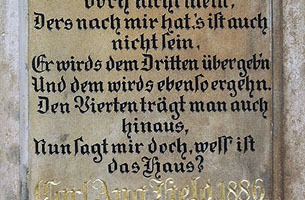 doch nicht mein,
Ders nach mir hat's ist auch
nicht sein,
Er wirds dem Dritten übergeb'n
Und dem wirds ebenso ergehn.
Den Vierten trägt man auch
hinaus,
Nun sagt mir doch, wess' ist
das Haus?
Carl Aug. Held 1886